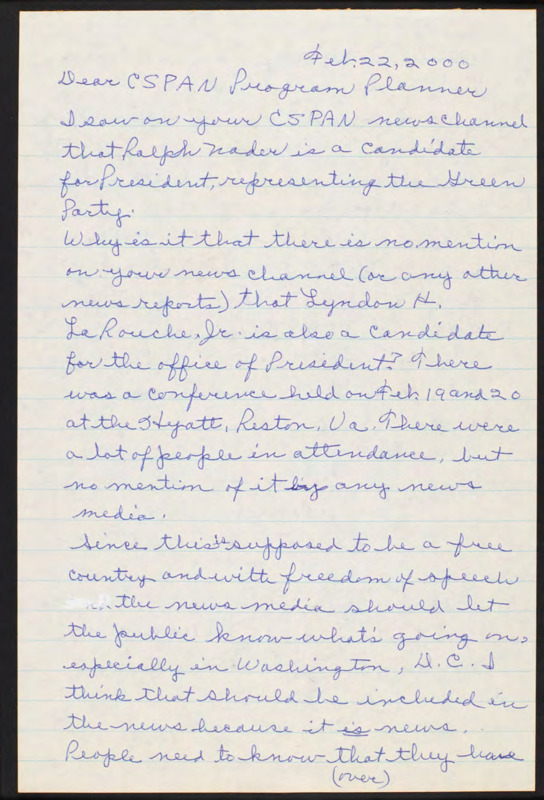 Feb. 22, 2000
Dear CSPAN Program Planner
I saw on your CSPAN news channel
that Ralph Nader is a candidate
for President, representing the Green
Party.
Why is it that there is no mention
on your news channel (or any other
news reports) that Lyndon H.
LaRouche, Jr. is also a candidate
for the office of President? There
was a conference held on Feb. 19 and 20
at the Hyatt, Reston, Va. There were
a lot of people in attendance, but
no mention of it by any news
media.
Since this is supposed to be a free
country and with freedom of speech
the news media should let
the public know what's going on,
especially in Washington, D.C. I
think that should be included in
the news because it is news.
People need to know that they have
(over)